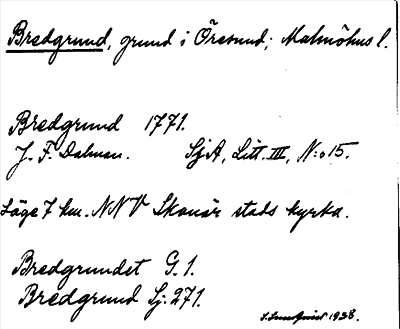 Bredgrund, grund i Öresund; Malmöhus l.
Bredgrund 1771.
J. F. Dalman. SjA, Litt. III, N:o 15.
Läge 7 km. NNV Skanör stads kyrka.
Bredgrundet G. 1.
Bredgrund Sj. 271.
1928.